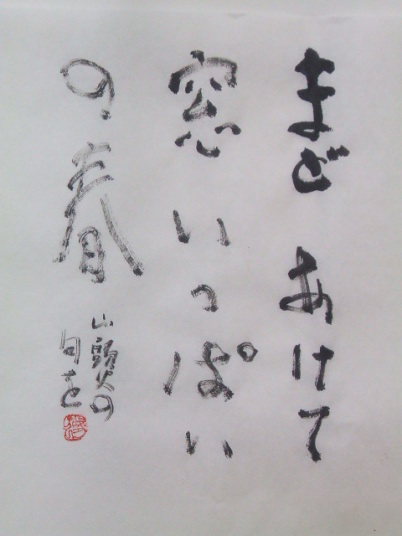 まど あけて
窓 いっぱい
の 春
山頭火の
句を